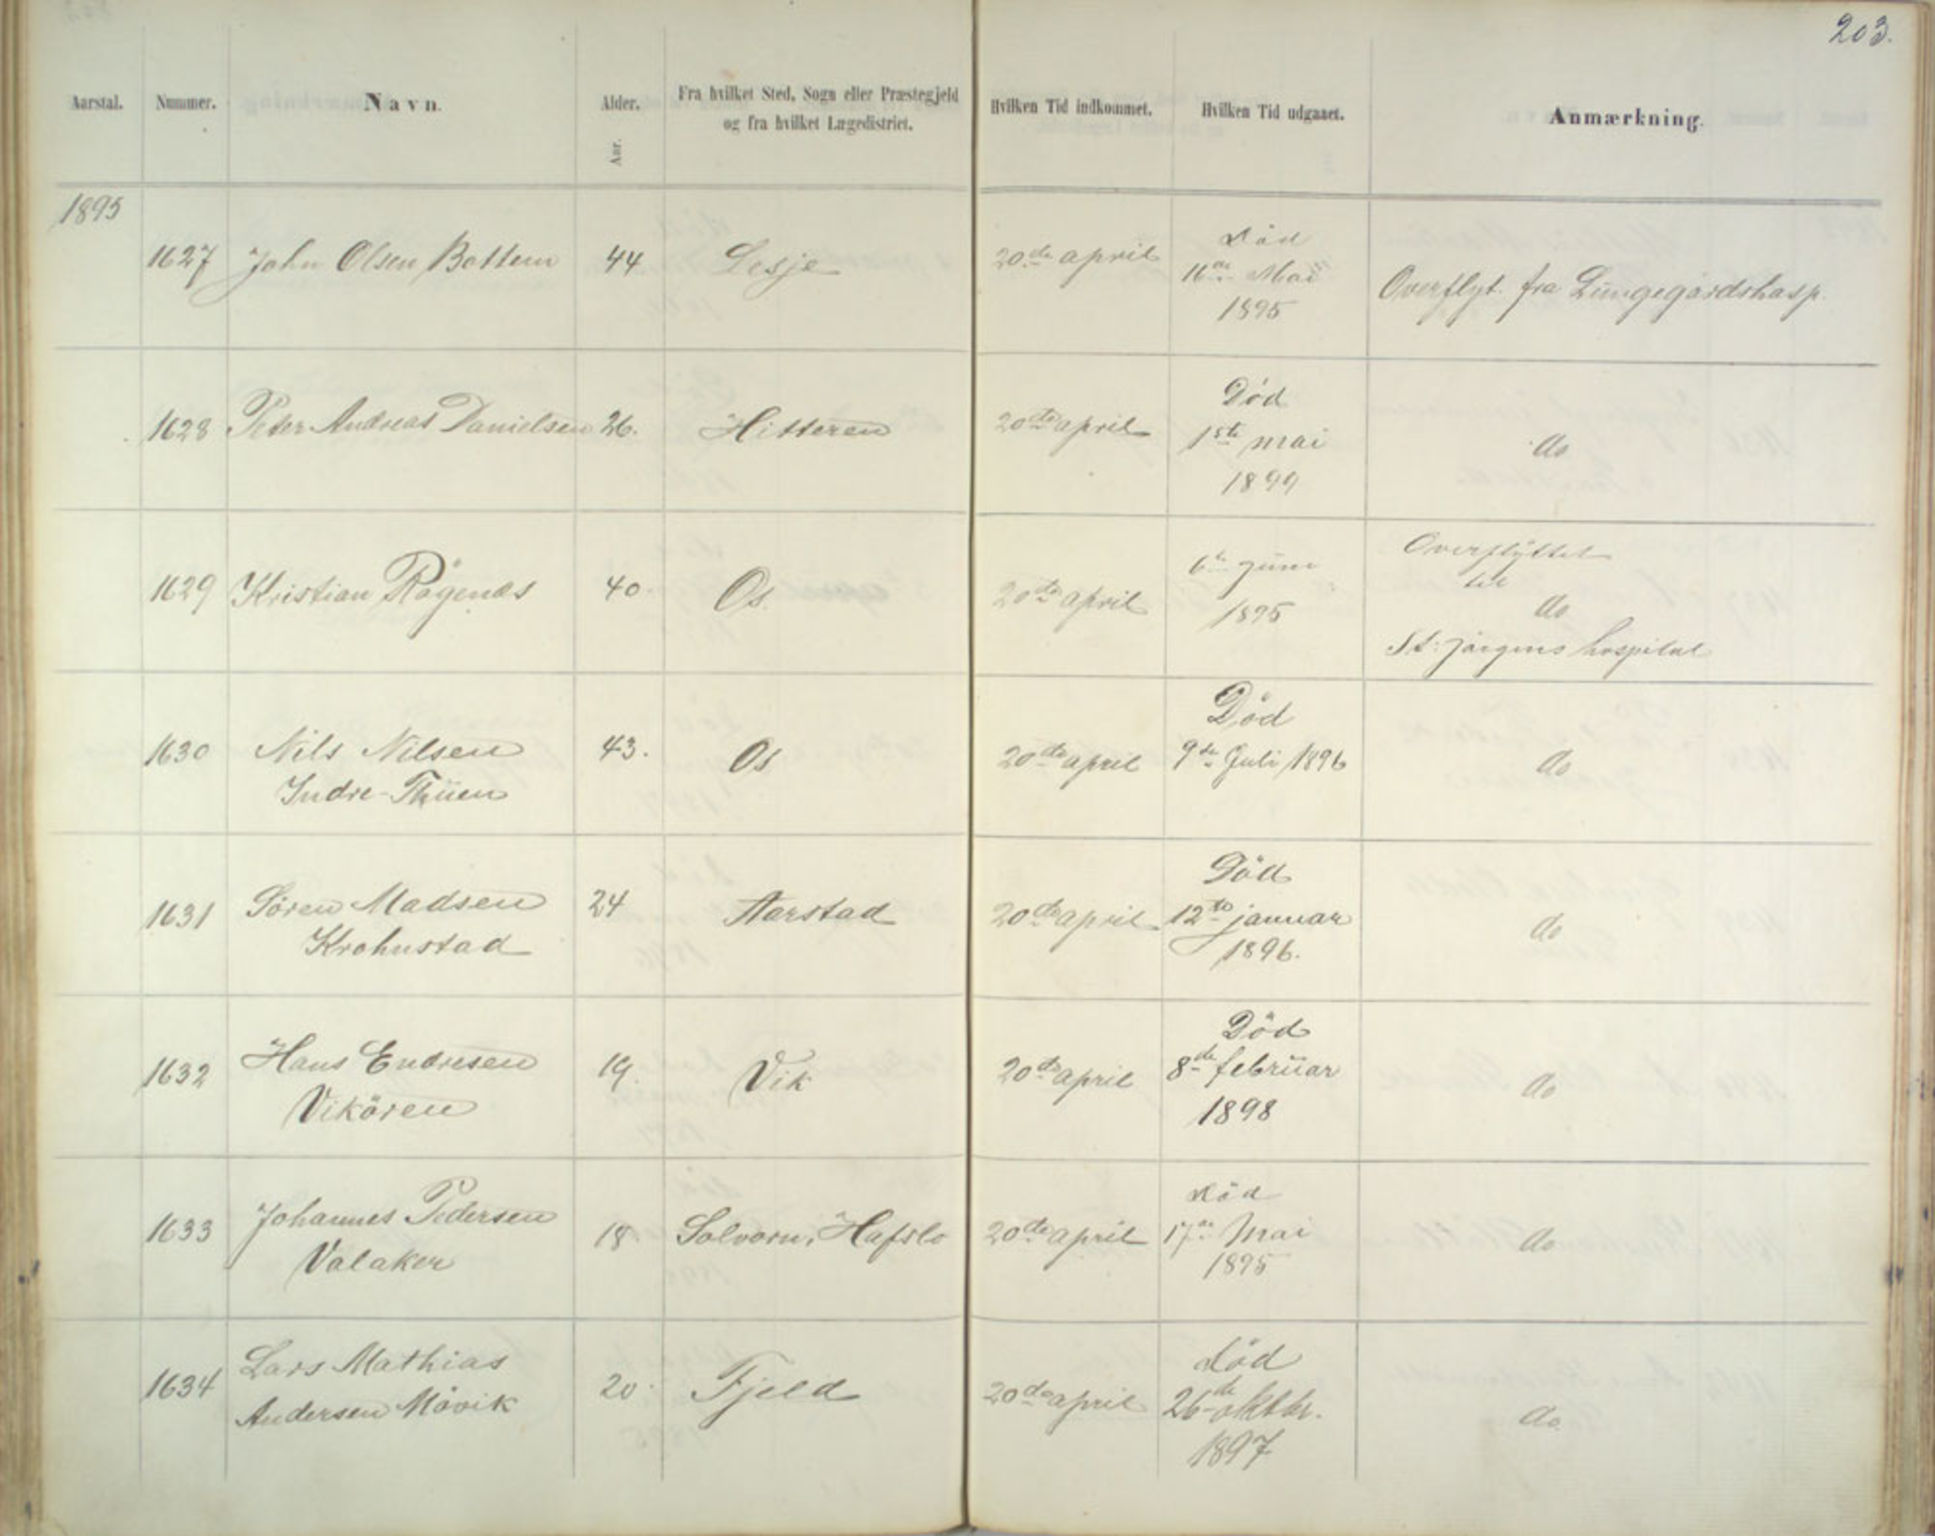 203.
Aarstal. Nummer. Navn. Alder. Fra hvilket Sted, Sogn eller Præstegjeld Hvilken Tid indkommet. Hvilken Tid udgaaet. Anmærkning.
og fra hvilket Lægedistrict.
Aar.
1895
1627 John Olsen Bottem 44 Lesje 20de april Död
16de Mai
1895
Overflyt. fra Lungegårdshosp.
1628 Peter Andreas Danielsen 26. Hitteren 20de april Död
1ste mai
1899
do
1629 Kristian Rögenæs 40. Os. 20de april 6te juni
1895
Overflyttet
til
do
St: Jörgens hospital
1630 Nils Nilsen 43. Os 20de april Död
Indre-Thuen 9de Juli 1896
do
1631 Sören Madsen 24 Aarstad 20de april Död
Krohnstad 12te januar
1896.
do
1632 Hans Endresen 19. Vik 20de april Död
Vikören 8de februar
1898
do
1633 Johannes Pedersen 18. Solvorn, Hafslo 20de april Död
Valaker 17de Mai
1895
do
1634 Lars Mathias 20. Fjeld 20de april död
Andersen Måvik 26de oktbr.
1897
do